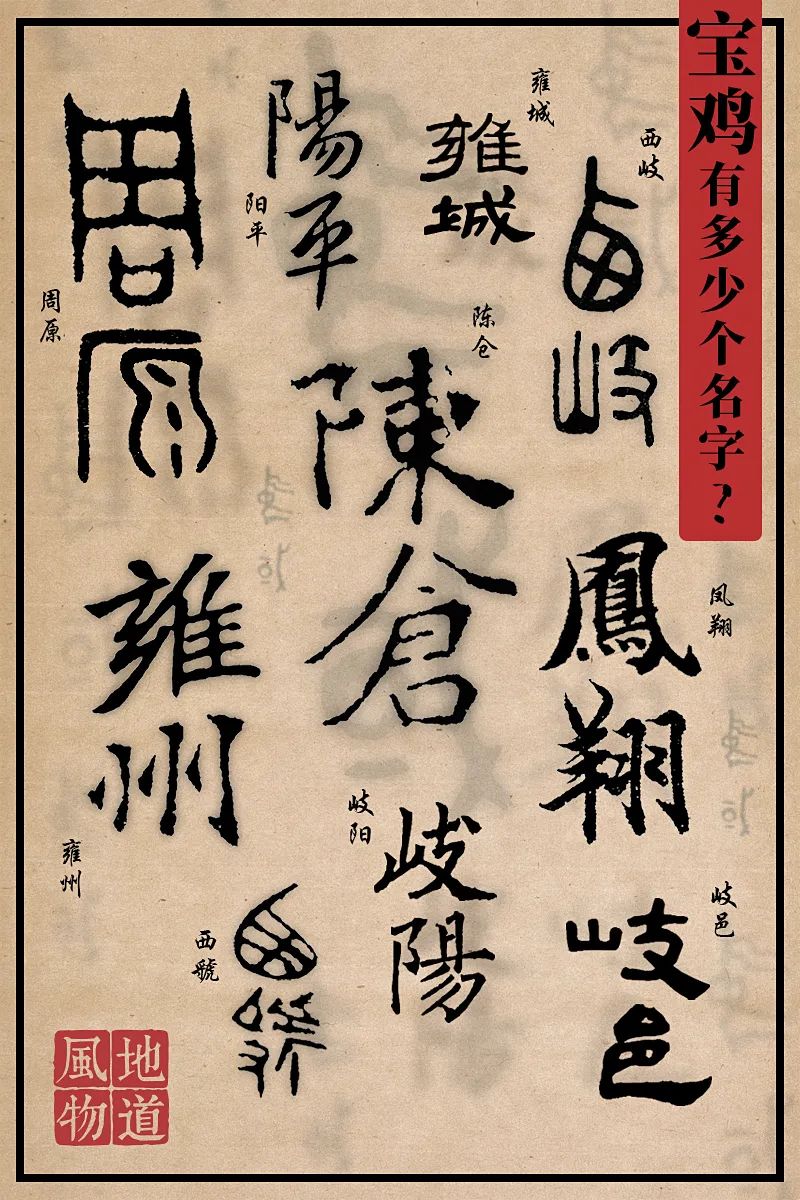 宝鸡有多少个名字？
西岐
西岐
鳳翔
凤翔
岐邑
岐邑
雍城
雍城
陈仓
陳倉
岐阳
岐陽
陽平
阳平
西虢
西虢
周原
周原
雍州
雍州
地道
風物